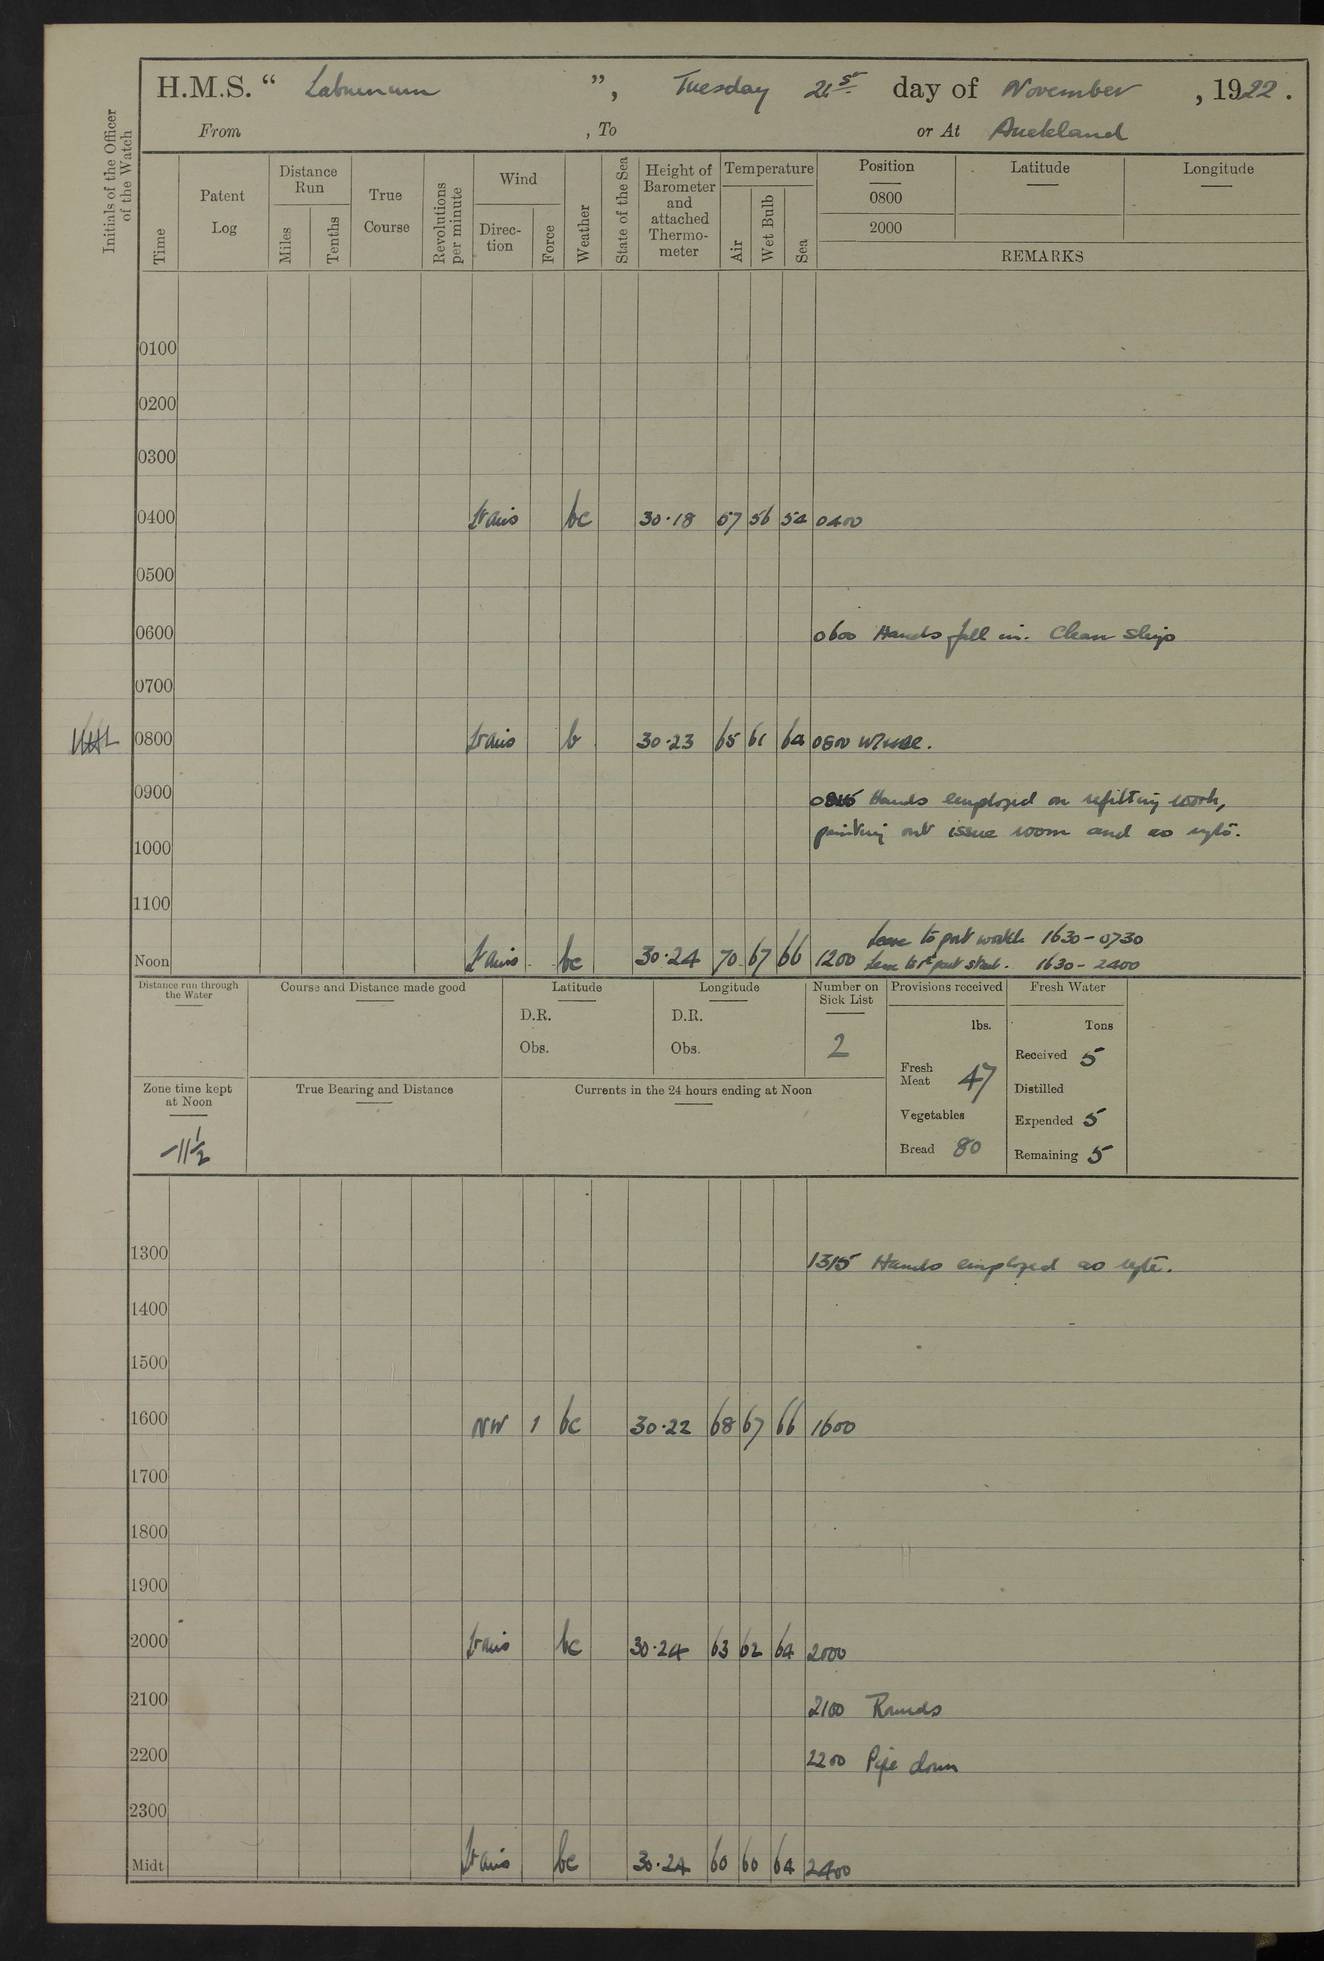 H.M.S. “ Laburnum ”, Tuesday 21st day of November , 1922 .
From , To or At Auckland
Initials of the Officer of the Watch
Time
Patent Log
Distance Run
Miles
Tenths
True Course
Revolutions per minute
Wind
Direc-tion
Force
Weather
State of the Sea
Height of Barometer and attached Thermo-meter
Temperature
Air
Wet Bulb
Sea
Position
0800
2000
Latitude
Longitude
REMARKS
0100
0200
0300
0400 Lt airs bc 30·18 57 56 54 0400
0500
0600 0600 Hands fall in. Clean Ship
0700
0800 Lt airs b 30·23 65 61 64 0800
0900 Hands employed on refitting work,
painting out issue room and as reqte.
1000
1100
Leave to port watch 1630 - 0730
Noon Lt airs bc 30·24 70 67 66 1200 Leave to 1st part starb. 1630 - 2400
Distance run through the Water
Course and Distance made good
Latitude
D.R.
Obs.
Longitude
D.R.
Obs.
Number on Sick List
2
Provisions received
lbs.
Fresh Meat 47
Vegetables
Bread 80
Fresh Water
Tons
Received 5
Distilled
Expended 5
Remaining 5
Zone time kept at Noon
-11½
True Bearing and Distance
Currents in the 24 hours ending at Noon
1300 1315 Hands employed as reqte.
1400
1500
1600 NW 1 bc 30·22 68 67 66 1600
1700
1800
1900
2000 Lt airs bc 30·24 63 62 64 2000
2100 2100 Rounds
2200 2200 Pipe down
2300
Midt Lt airs bc 30·24 60 60 64 2400